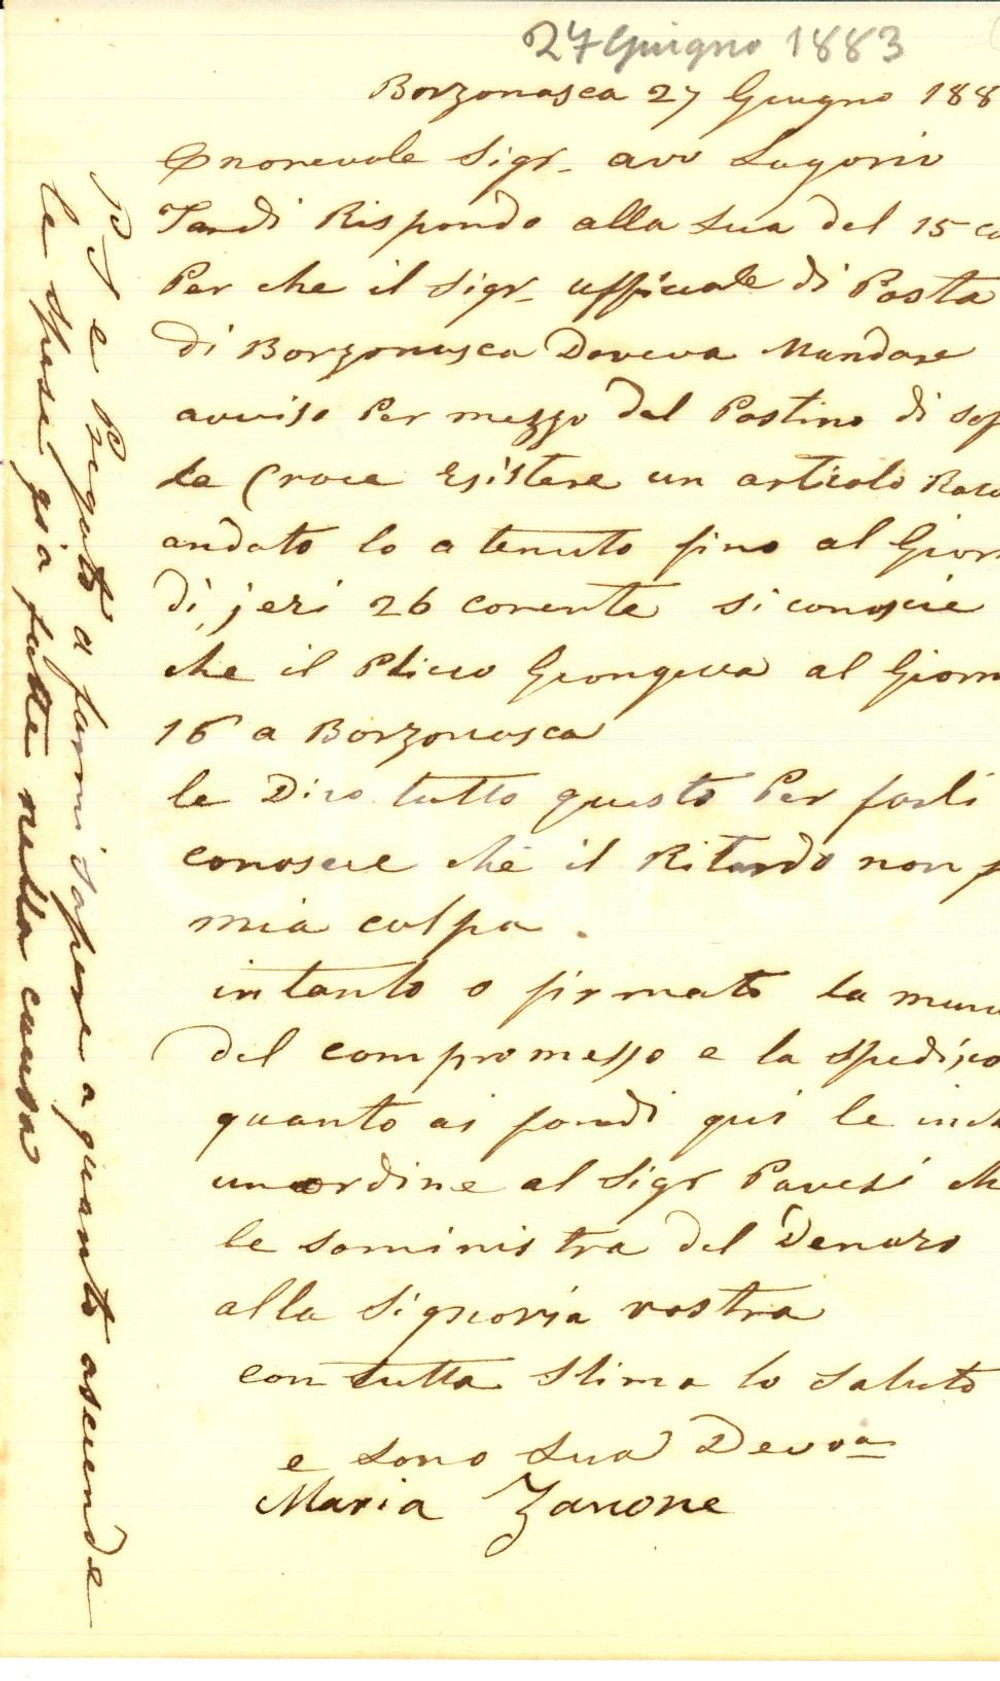 27 Giugno 1883
Borzonasca 27 Giugno 188
Onorevole Sigr. avv Lagorio
Tardi Rispondo alla sua del 15 co
Per che il Sigr. ufficiale di Posta
di Borzonasca Doveva Mandare
avviso Per mezzo del Postino di sop
la Croce Esistere un articolo Raco
andato lo a tenuto fino al Giorn
di jeri 26 corente si conoscie
che il Plico Giongeva al Giorn
16 a Borzonasca
le Dico tutto questo Per farli
conoscie che il Ritardo non p
mia colpa.
intanto o firmato la
del compromesso e la spedisco
quanto ai fondi qui le
un ordine al Sigr Pavesi
le sominis tra del Denaro
alla Signoria vostra
con tutta Stima lo Saluto
e sono sua Devoa
Maria Zanone
PS e Pregato a farmi sapere a quanto asciende
le spese gia fatte nella causa